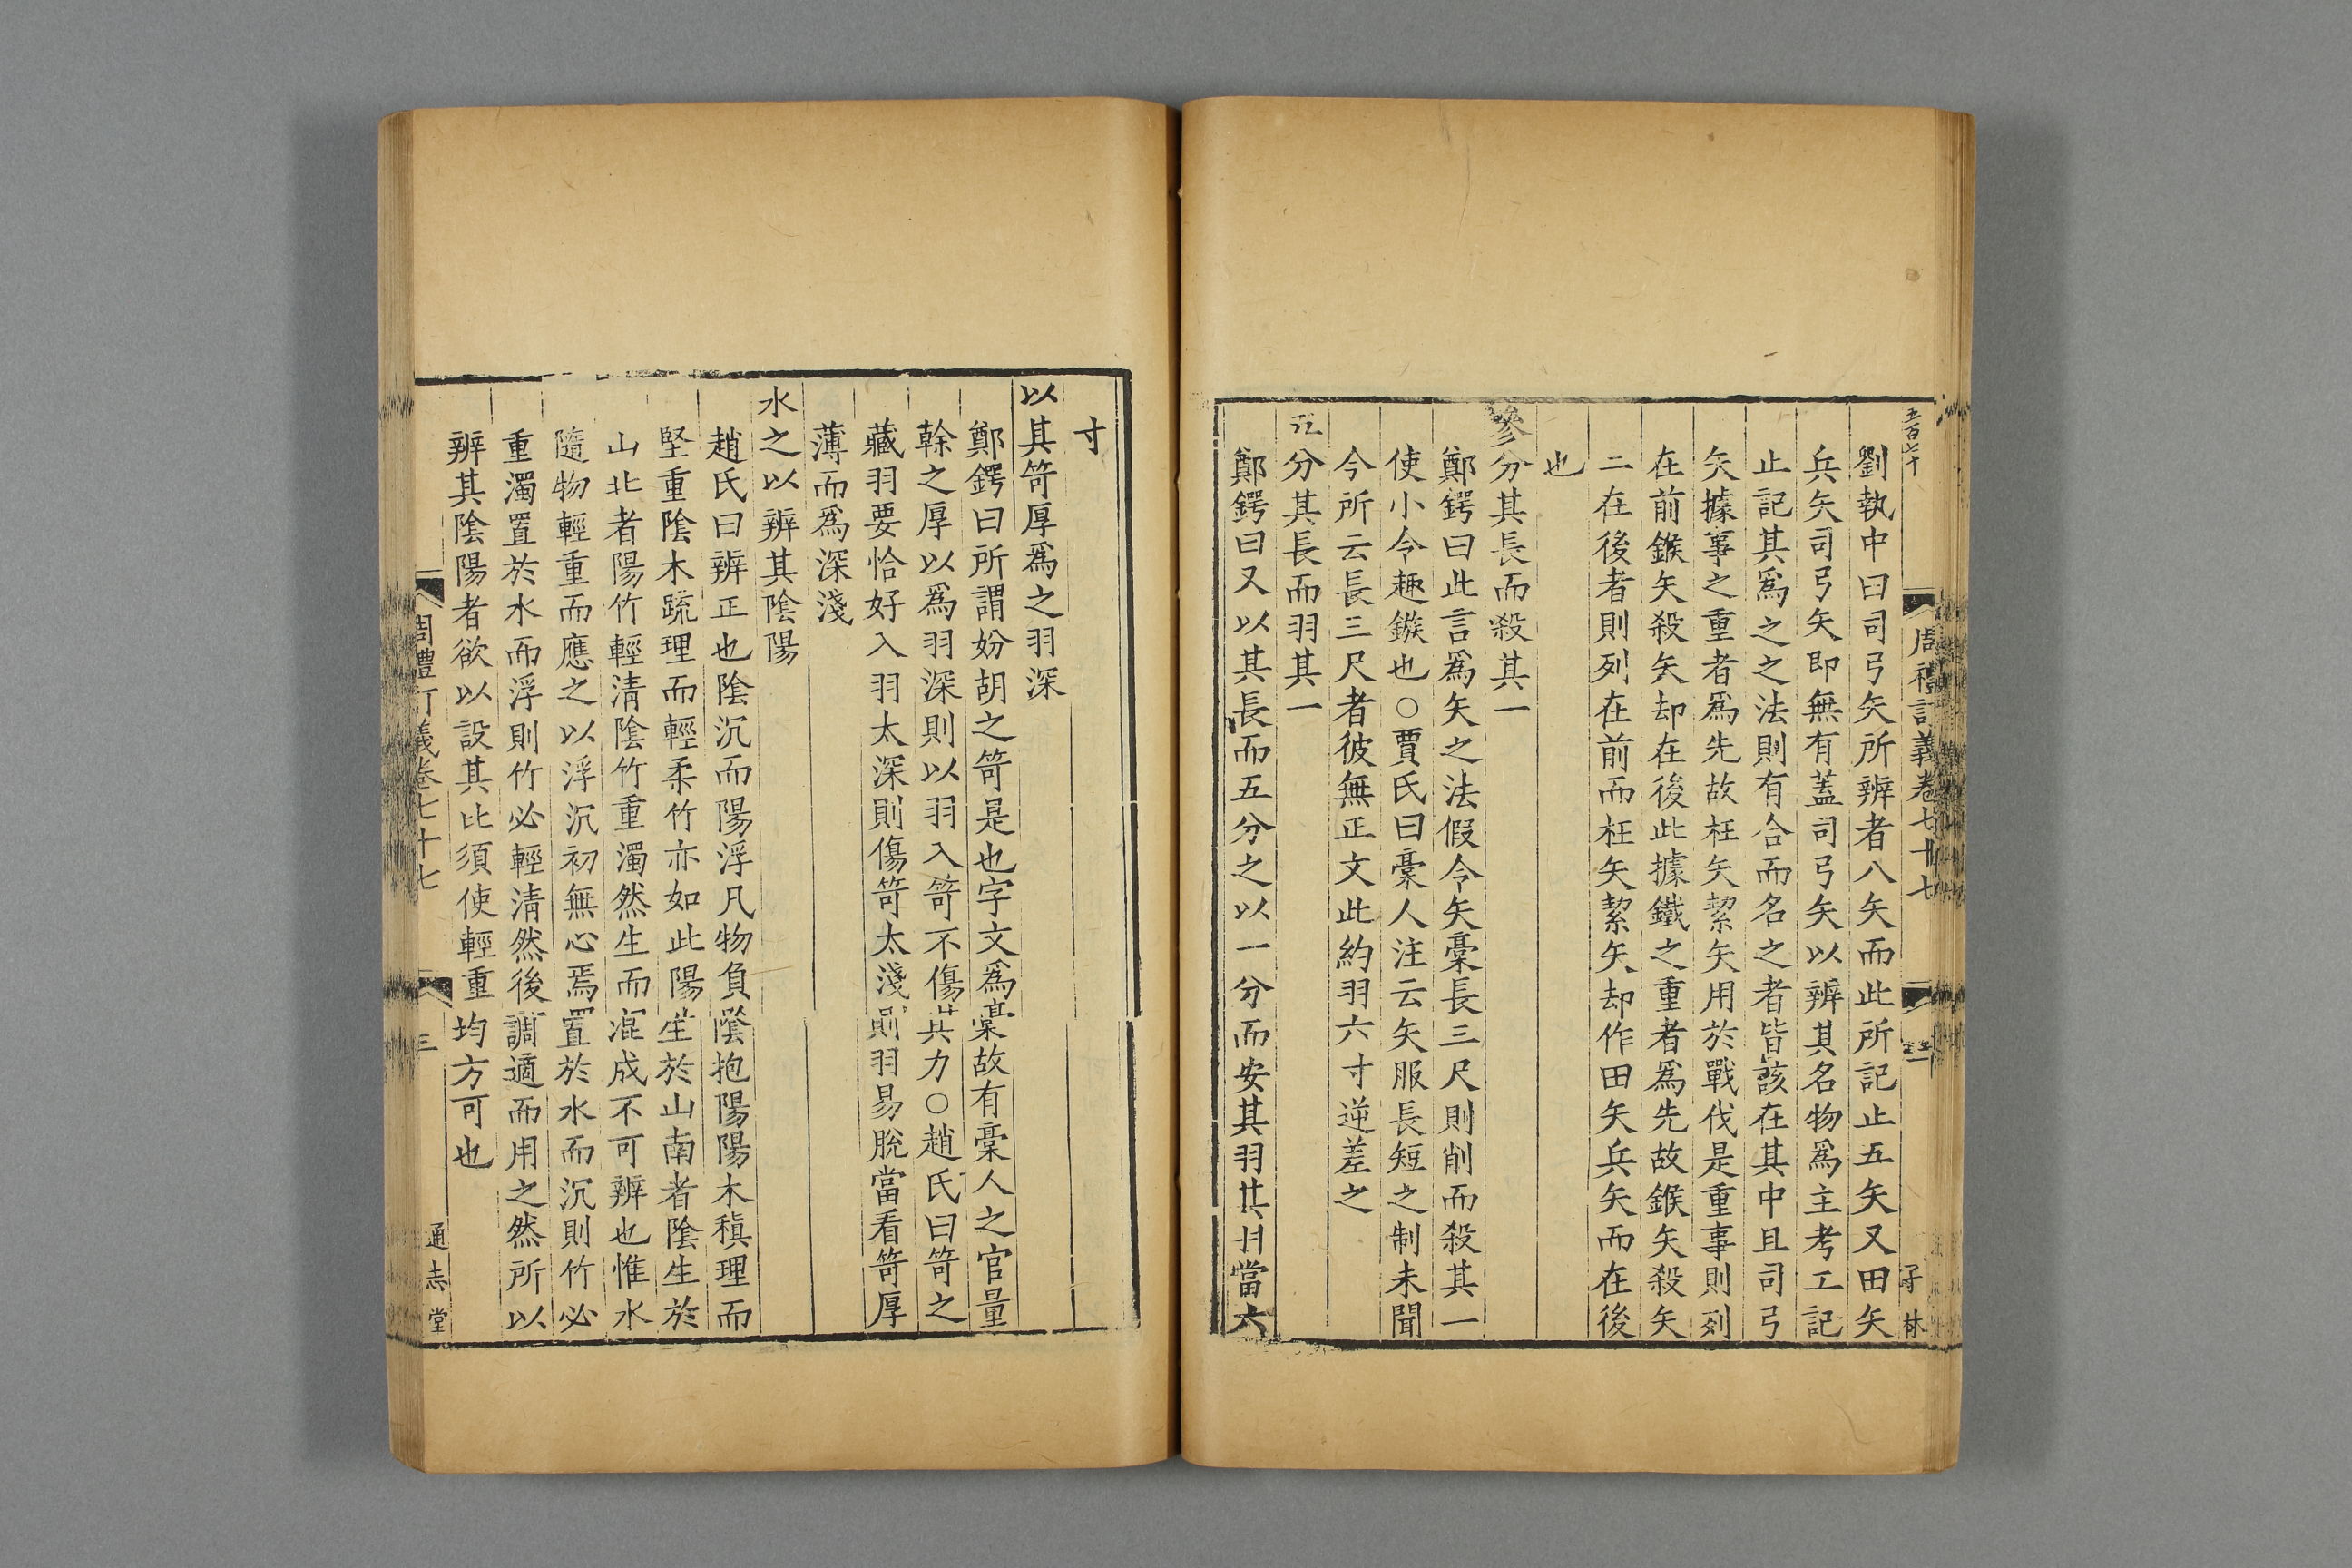 五百七十
周禮訂義卷七十七
二
子林
劉執中曰司弓矢所辨者八矢而此所記止五矢又田矢
兵矢司弓矢即無有蓋司弓矢以辨其名物爲主考工記
止記其爲之之法則有合而名之者皆該在其中且司弓
矢據事之重者爲先故枉矢絜矢用於戰伐是重事則列
在前鍭矢殺矢却在後此據鐵之重者爲先故鍭矢殺矢
二在後者則列在前而枉矢絜矢却作田矢兵矢而在後
也
參分其長而殺其一
鄭鍔曰此言爲矢之法假令矢稾長三尺則削而殺其一
使小令趣鏃也○賈氏曰稾人注云矢服長短之制未聞
今所云長三尺者彼無正文此約羽六寸逆差之
五分其長而羽其一
鄭鍔曰又以其長而五分之以一分而安其羽其羽當六
寸
以其笴厚爲之羽深
鄭鍔曰所謂妢胡之笴是也字文爲稾故有稾人之官量
幹之厚以爲羽深則以羽入笴不傷其力○趙氏曰笴之
藏羽要恰好入羽太深則傷笴太淺則羽易脫當看笴厚
薄而爲深淺
水之以辨其陰陽
趙氏曰辨正也陰沉而陽浮凡物負陰抱陽陽木稹理而
堅重陰木疏理而輕柔竹亦如此陽生於山南者陰生於
山北者陽竹輕清陰竹重濁然生而混成不可辨也惟水
隨物輕重而應之以浮沉初無心焉置於水而沉則竹必
重濁置於水而浮則竹必輕清然後調適而用之然所以
辨其陰陽者欲以設其比須使輕重均方可也
周禮訂義卷七十七
三
通志堂